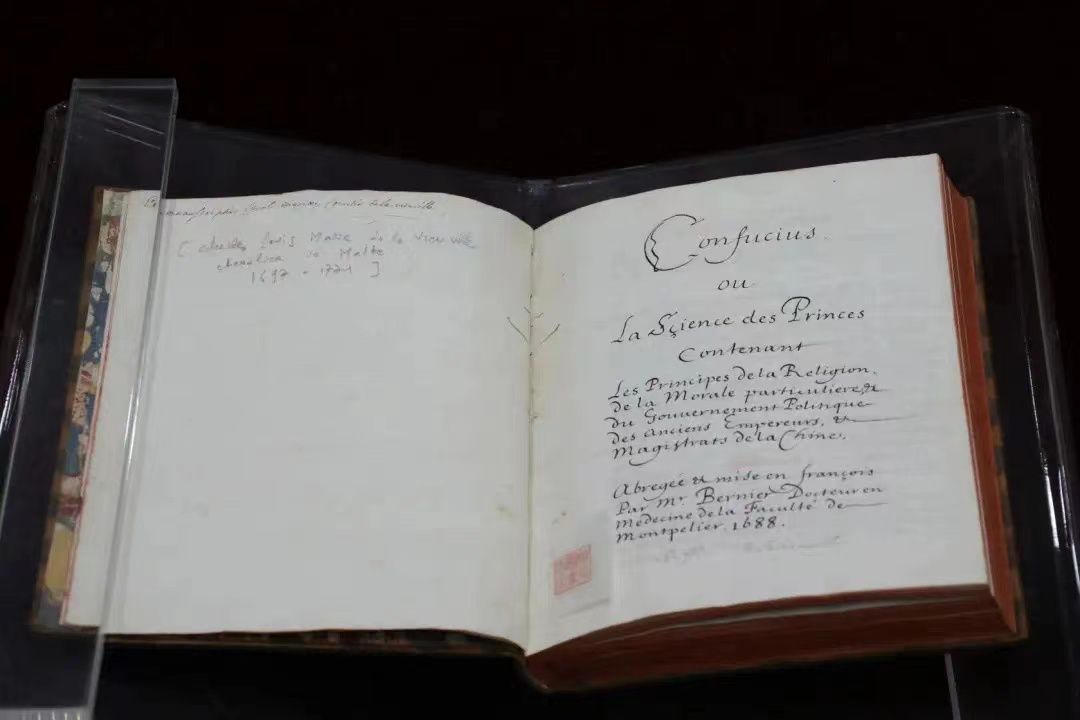 manuscrit
[ Charles Louis Marie de la Vieuville
chevalier de Malte
1697 - 1721 ]
Confucius.
ou
La Sçience des Princes
Contenant
Les Principes de la Religion,
de la Morale particuliere, &
du Gouvernement Politique
des anciens Empereurs, &
Magistrats de la Chine,
Abregée & mise en françois
Par Mr. Bernier Docteur en
Medecine de la Faculté de
Montpelier. 1688.